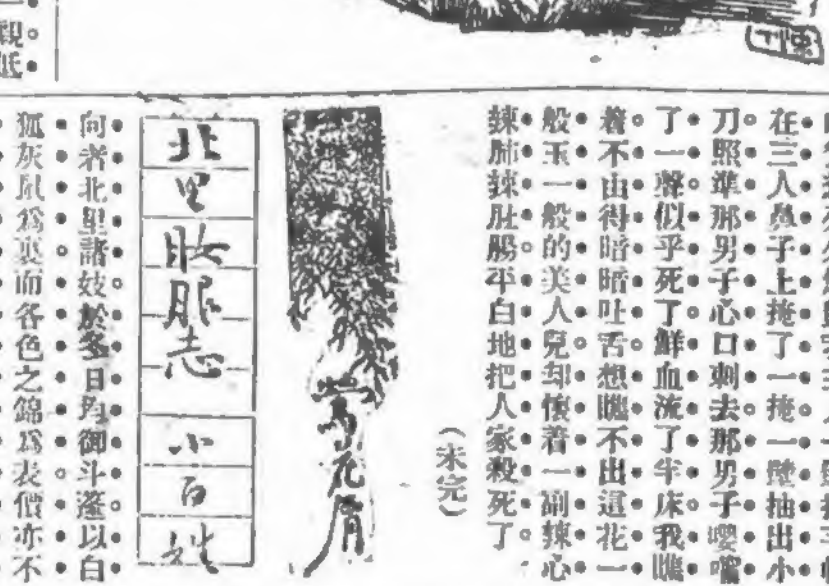 在三人鼻子上掩了一掩一壁抽出小
刀照準那男子心口刺去那男子嚶嚀
了一聲似乎死了鮮血流了半床我瞧
着不由得暗暗吐舌想瞧不出這花一
般玉一般的美人兒却懷着一副辣心
辣肺辣肚腸平白地把人家殺死了
(未完)
北里妝服志 小百姓
向者北里諸妓於冬日均御斗篷以白
狐灰鼠爲裏而各色之錦爲表價亦不